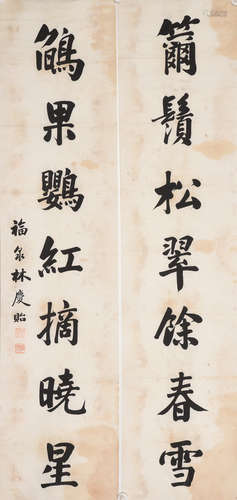 松翠餘春雪
果鸚紅摘曉星
福泉林慶貽